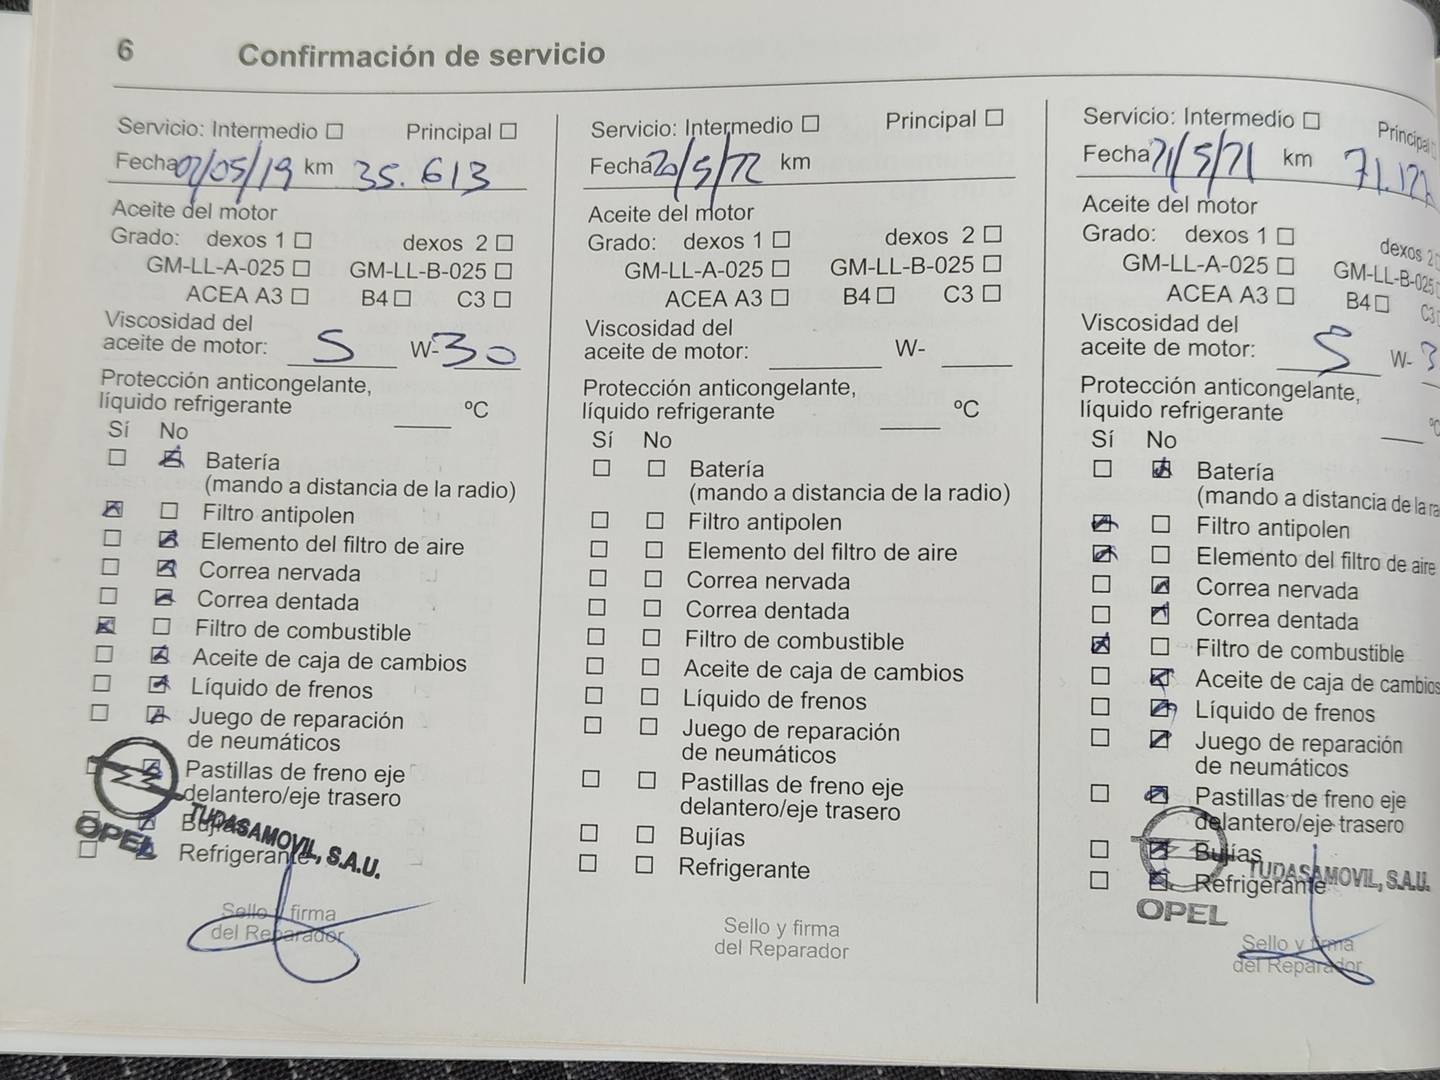 6 Confirmación de servicio
Servicio: Intermedio Principal
Fecha 02/05/19 km 35.613
Aceite del motor
Grado: dexos 1 dexos 2
GM-LL-A-025 GM-LL-B-025
ACEA A3 B4 C3
Viscosidad del
aceite de motor: 5 W-30
Protección anticongelante,
líquido refrigerante ºC
Sí No
Batería
(mando a distancia de la radio)
Filtro antipolen
Elemento del filtro de aire
Correa nervada
Correa dentada
Filtro de combustible
Aceite de caja de cambios
Líquido de frenos
Juego de reparación
de neumáticos
Pastillas de freno eje
delantero/eje trasero
Bujías
Refrigerante
OPEL TUDASAMOVIL, S.A.U.
Sello y firma
del Reparador
Servicio: Intermedio Principal
Fecha 20/5/22 km
Aceite del motor
Grado: dexos 1 dexos 2
GM-LL-A-025 GM-LL-B-025
ACEA A3 B4 C3
Viscosidad del
aceite de motor: W-
Protección anticongelante,
líquido refrigerante ºC
Sí No
Batería
(mando a distancia de la radio)
Filtro antipolen
Elemento del filtro de aire
Correa nervada
Correa dentada
Filtro de combustible
Aceite de caja de cambios
Líquido de frenos
Juego de reparación
de neumáticos
Pastillas de freno eje
delantero/eje trasero
Bujías
Refrigerante
Sello y firma
del Reparador
Servicio: Intermedio Principal
Fecha 21/5/21 km
Aceite del motor
Grado: dexos 1 dexos 2
GM-LL-A-025 GM-LL-B-025
ACEA A3 B4 C3
Viscosidad del
aceite de motor: 5 W-3
Protección anticongelante,
líquido refrigerante ºC
Sí No
Batería
(mando a distancia de la ra
Filtro antipolen
Elemento del filtro de aire
Correa nervada
Correa dentada
Filtro de combustible
Aceite de caja de cambios
Líquido de frenos
Juego de reparación
de neumáticos
Pastillas de freno eje
delantero/eje trasero
Bujías
Refrigerante
OPEL TUDASAMOVIL, S.A.U.
Sello y firma
del Reparador